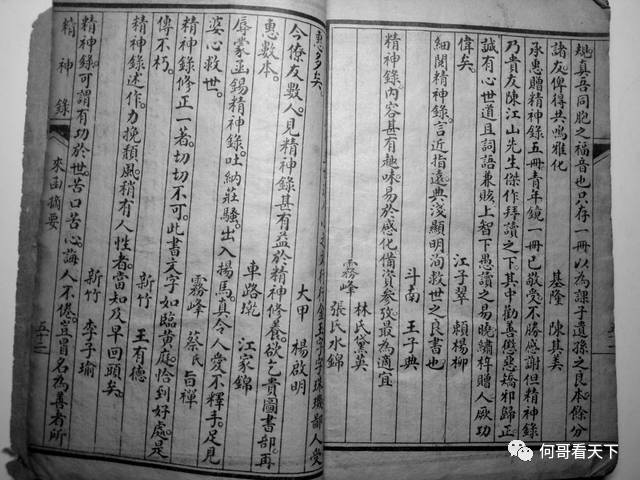 規真吾同胞之福音也只存一冊以為課子遺孫之良本餘分
諸友俾得共鳴雅化
基隆 陳其美
承惠贈精神錄五冊青年鏡一冊已敬受不勝感謝但精神錄
乃貴友陳江山先生傑作拜讀之下其中勸善懲惡矯邪歸正
誠有心世道且詞語兼賅上智下愚讀之易曉繡梓贈人厥功
偉矣
江子翠 賴楊柳
細閱精神錄言近指遠典淺顯明洵救世之良書也
斗南 王子典
精神錄內容甚有趣味易於感化備資參攷最為適宜
霧峰 林氏黛英
張氏水錦
惠多矣
大甲 楊啟明
今僚友數人見精神錄甚有益於精神修養欲乞貴圖書部再
惠數本
車路墘 江家錦
辱蒙函錫精神錄吐納莊騷出入揚馬真令人愛不釋手足見
婆心救世
霧峰 蔡氏旨禪
精神錄修正一著切切不可此書文字如臨黃庭恰到好處是
傳不朽
新竹 王有德
精神錄述作力挽頹風稍有人性者當知及早回頭矣
新竹 李子瑜
精神錄可謂有功於世苦口苦心誨人不倦豈冒名為善者所
精神錄
來函摘要
五十三
何哥看天下